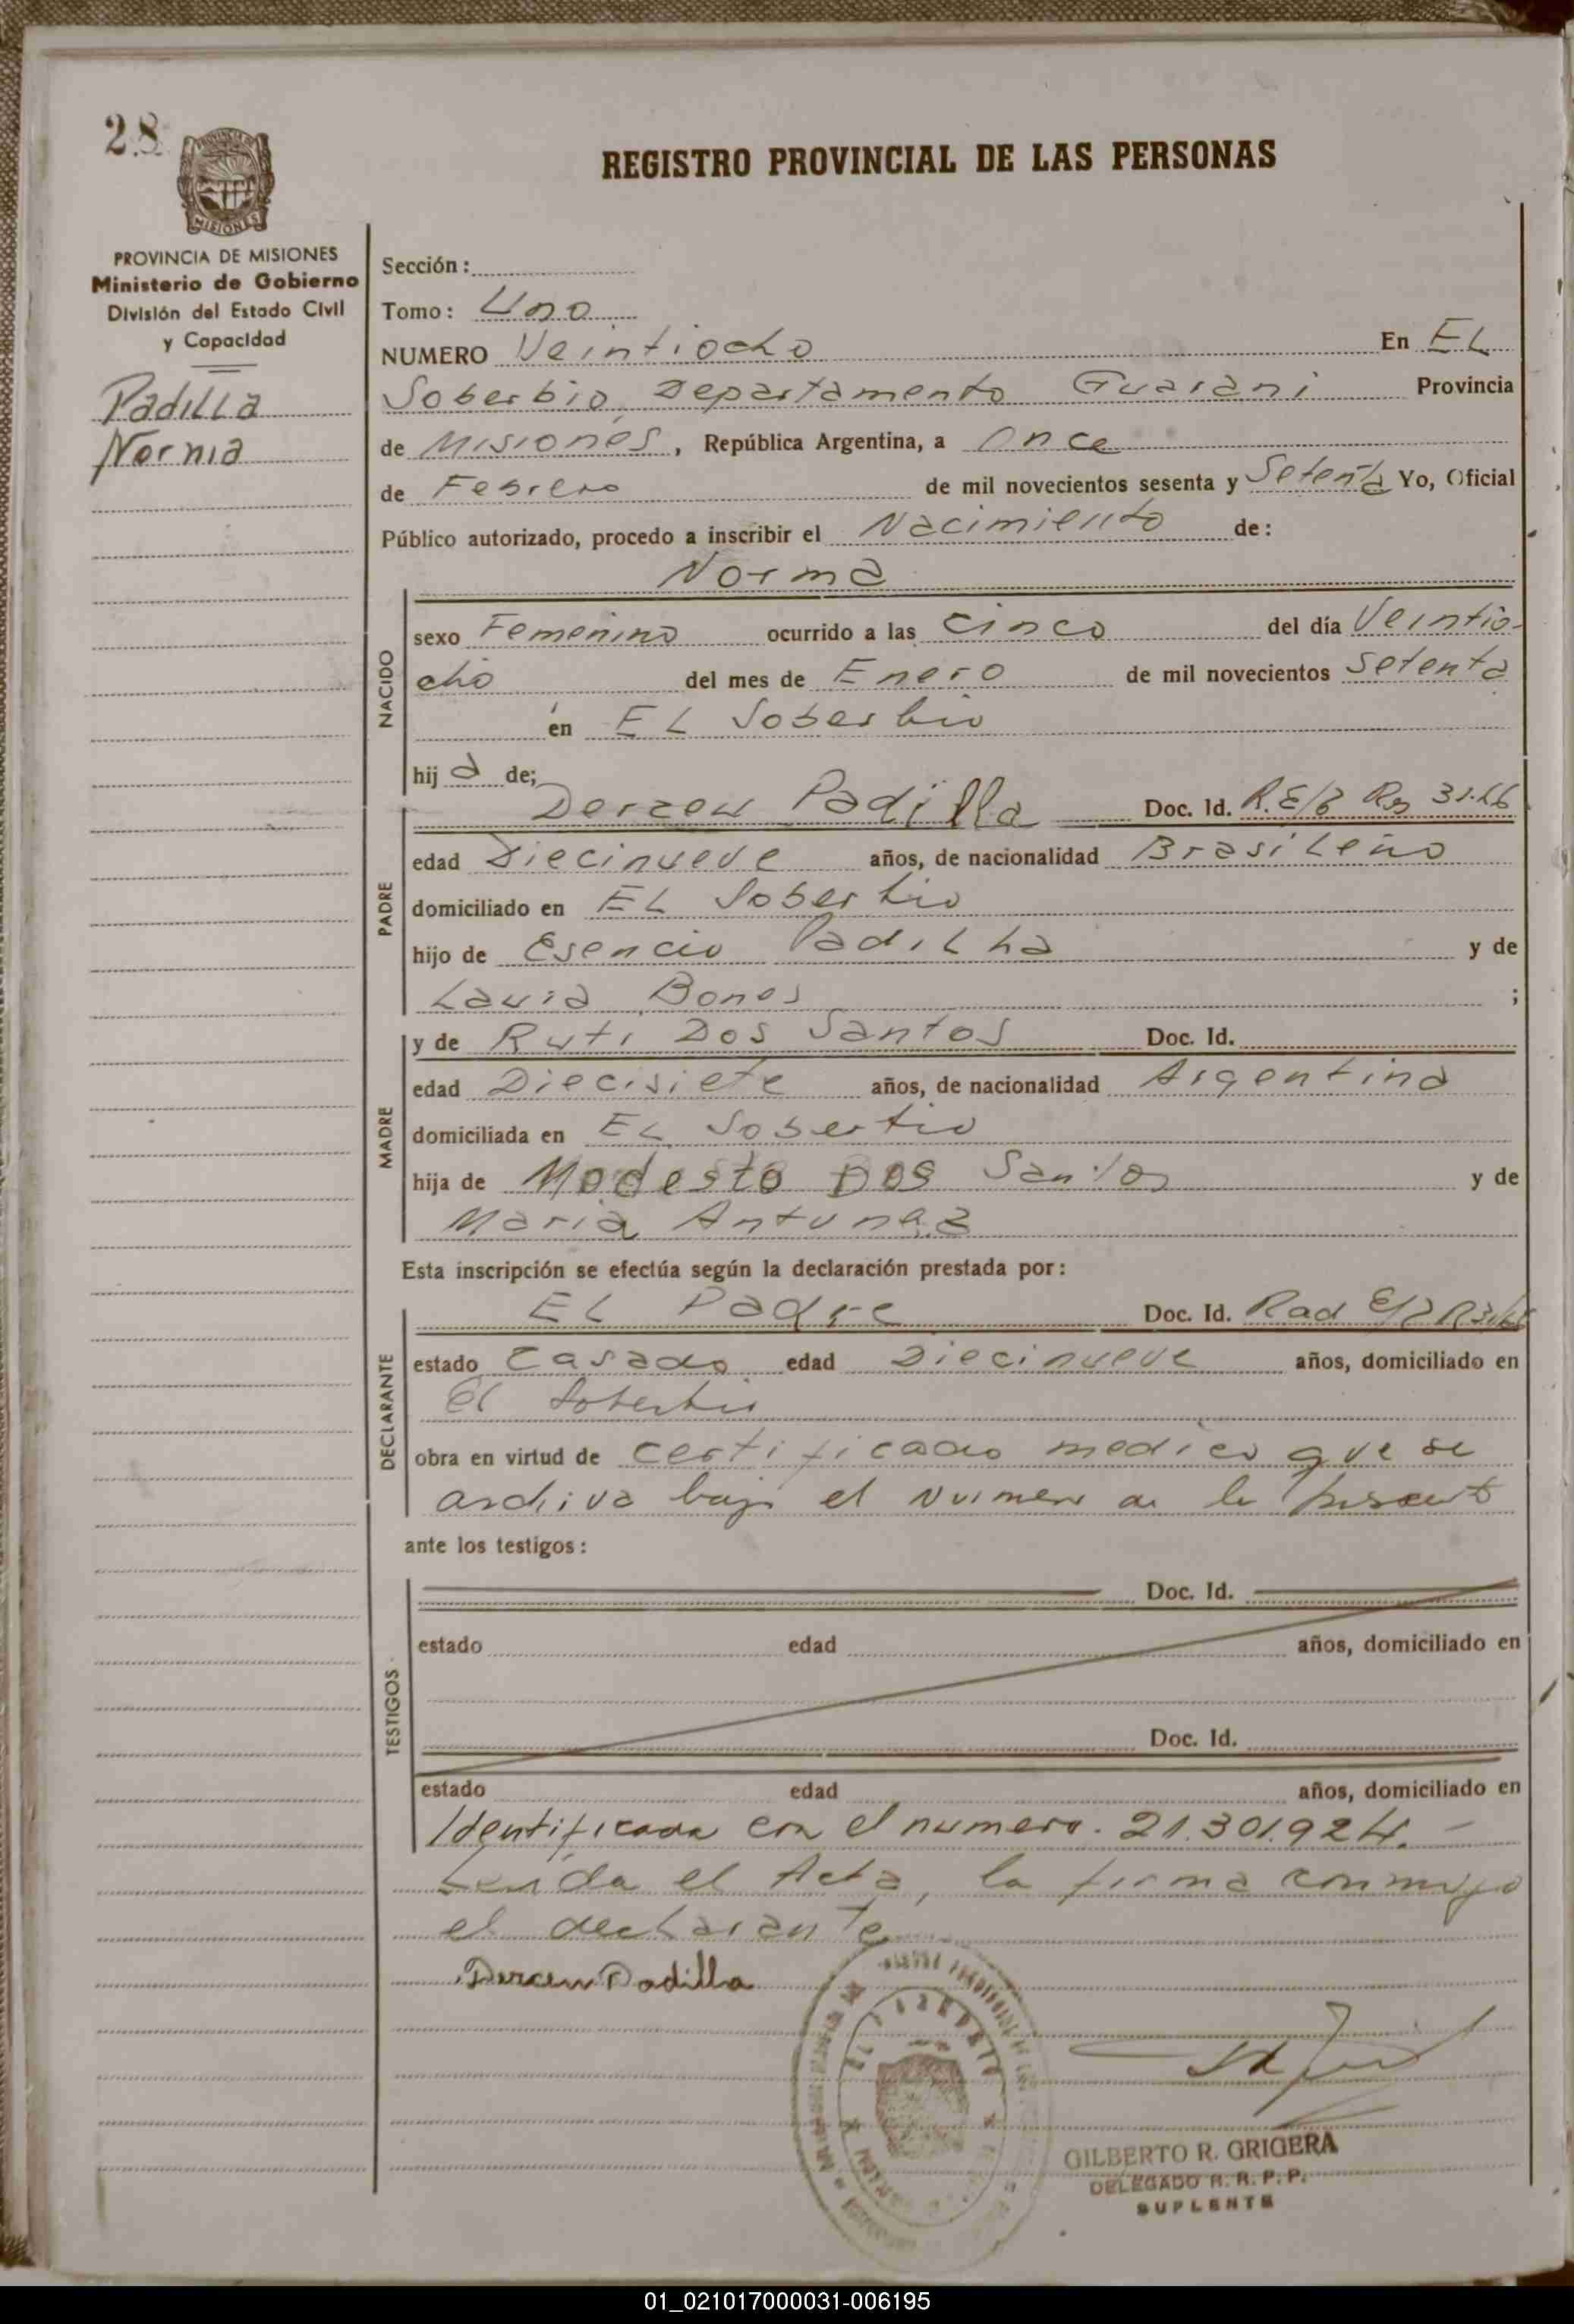 28
PROVINCIA DE
MISIONES
REGISTRO PROVINCIAL DE LAS PERSONAS
PROVINCIA DE MISIONES
Ministerio de Gobierno
División del Estado Civil
y Capacidad
Padilla
Norma
Sección:
Tomo: Uno
NUMERO Veintiocho En EL
Soberbio, Departamento Guarani Provincia
de Misiones, República Argentina, a Once
de Febrero de mil novecientos sesenta y Setenta Yo, Oficial
Público autorizado, procedo a inscribir el Nacimiento de:
Norma
NACIDO
sexo Femenino ocurrido a las Cinco del día Veintio-
cho del mes de Enero de mil novecientos Setenta
en EL Soberbio
hij a de;
PADRE
Dercen Padilla Doc. Id. R.E/
edad Diecinueve años, de nacionalidad Brasileño
domiciliado en EL Soberbio
hijo de Esencio Padilha y de
Laura Bones ;
MADRE
y de Ruti Dos Santos Doc. Id.
edad Diecisiete años, de nacionalidad Argentina
domiciliada en EL Soberbio
hija de Modesto Dos Santos y de
Maria Antunez
Esta inscripción se efectúa según la declaración prestada por:
DECLARANTE
EL Padre Doc. Id. Rad
estado Casado edad Diecinueve años, domiciliado en
El Soberbio
obra en virtud de certificado medico que se
archiva bajo el numero de la presente
ante los testigos:
TESTIGOS
Doc. Id.
estado edad años, domiciliado en
Doc. Id.
estado edad años, domiciliado en
Identificada con el numero. 21.301.924. -
Leida el Acta, la firma conmigo
el declarante
Dercen Padilla
EL SOBERBIO
GILBERTO R. GRIGERA
DELEGADO R. R. P. P.
SUPLENTE
01_021017000031-006195